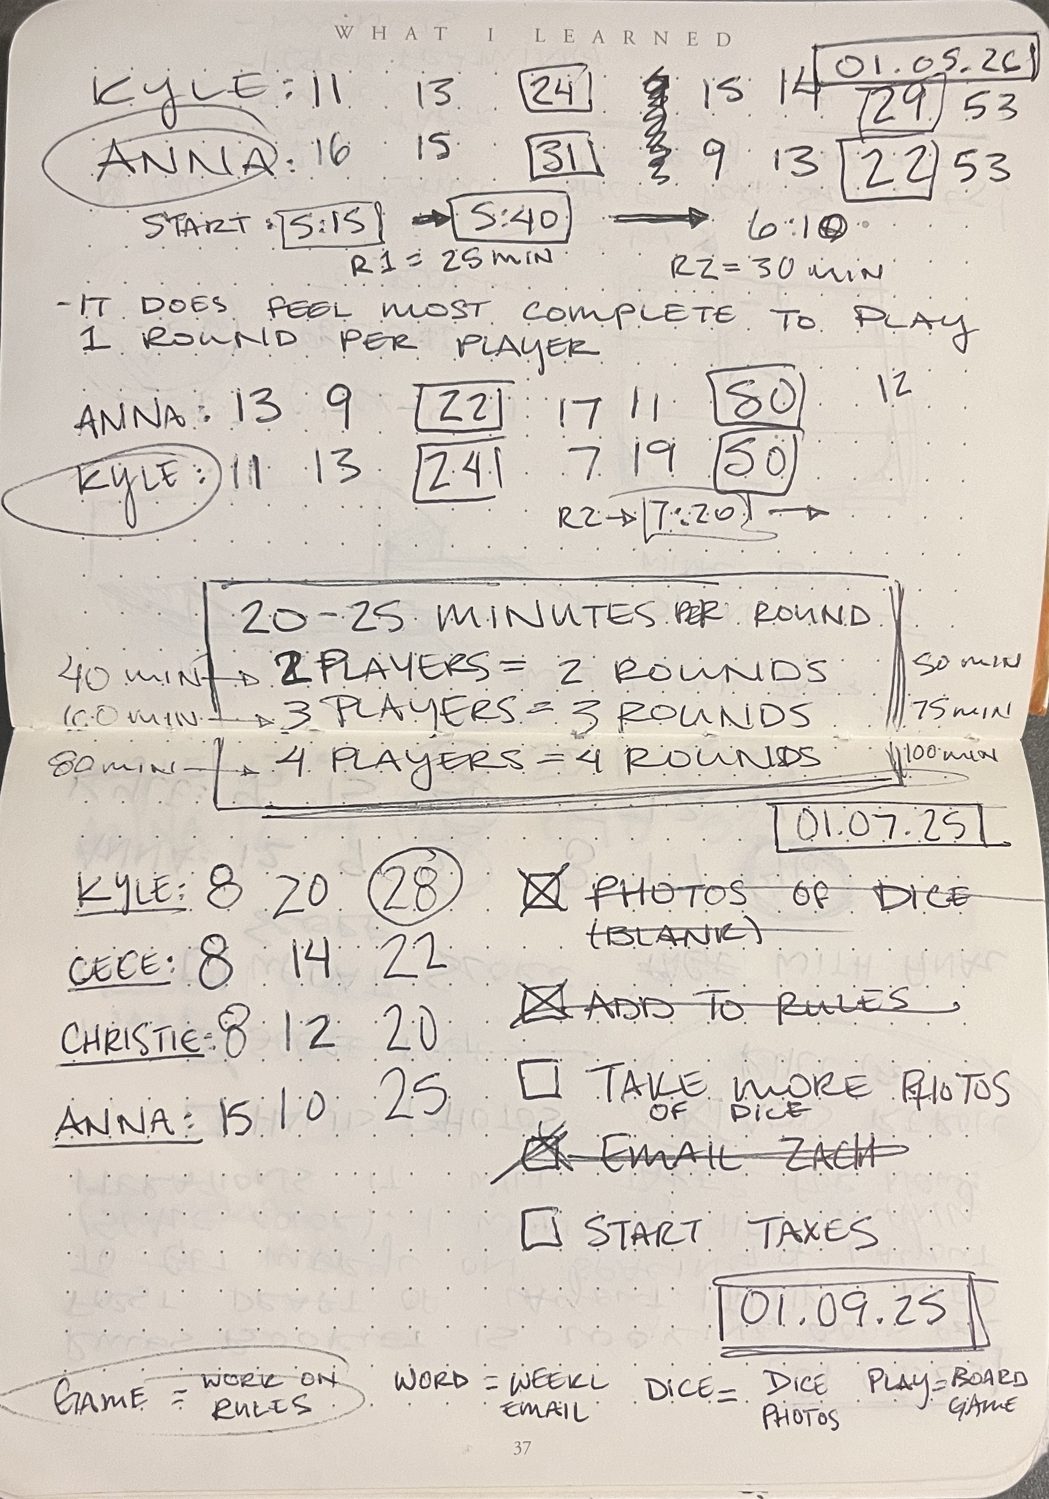 WHAT I LEARNED
01.05.26
KYLE: 11 13 24 15 14 29 53
ANNA: 16 15 31 9 13 22 53
START: 5:15 → 5:40 → 6:10
R1 = 25 MIN R2 = 30 MIN
-IT DOES FEEL MOST COMPLETE TO PLAY
1 ROUND PER PLAYER
ANNA: 13 9 22 17 11 50 12
KYLE: 11 13 24 7 19 50
R2 → 7:20 →
20-25 MINUTES PER ROUND
40 MIN → 2 PLAYERS = 2 ROUNDS 50 MIN
MIN → 3 PLAYERS = 3 ROUNDS 75 MIN
80 MIN → 4 PLAYERS = 4 ROUNDS 100 MIN
01.07.25
KYLE: 8 20 28
CECE: 8 14 22
CHRISTIE: 8 12 20
ANNA: 15 10 25
☒ PHOTOS OF DICE
(BLANK)
☒ ADD TO RULES
☐ TAKE MORE PHOTOS
OF DICE
☒ EMAIL ZACH
☐ START TAXES
01.09.25
GAME = WORK ON
RULES
WORD = WEEKL
EMAIL
DICE = DICE
PHOTOS
PLAY = BOARD
GAME
37